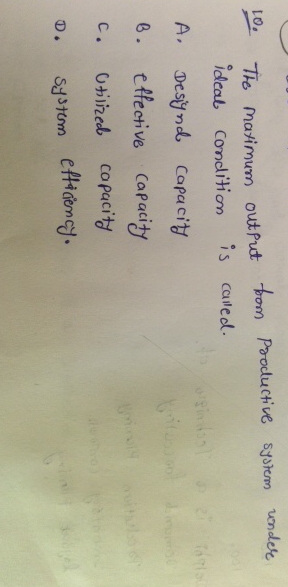 10. The maximum output from productive system under
ideal condition is called.
A. Designd capacity
B. effective capacity
C. utilized capacity
D. system efficiency.